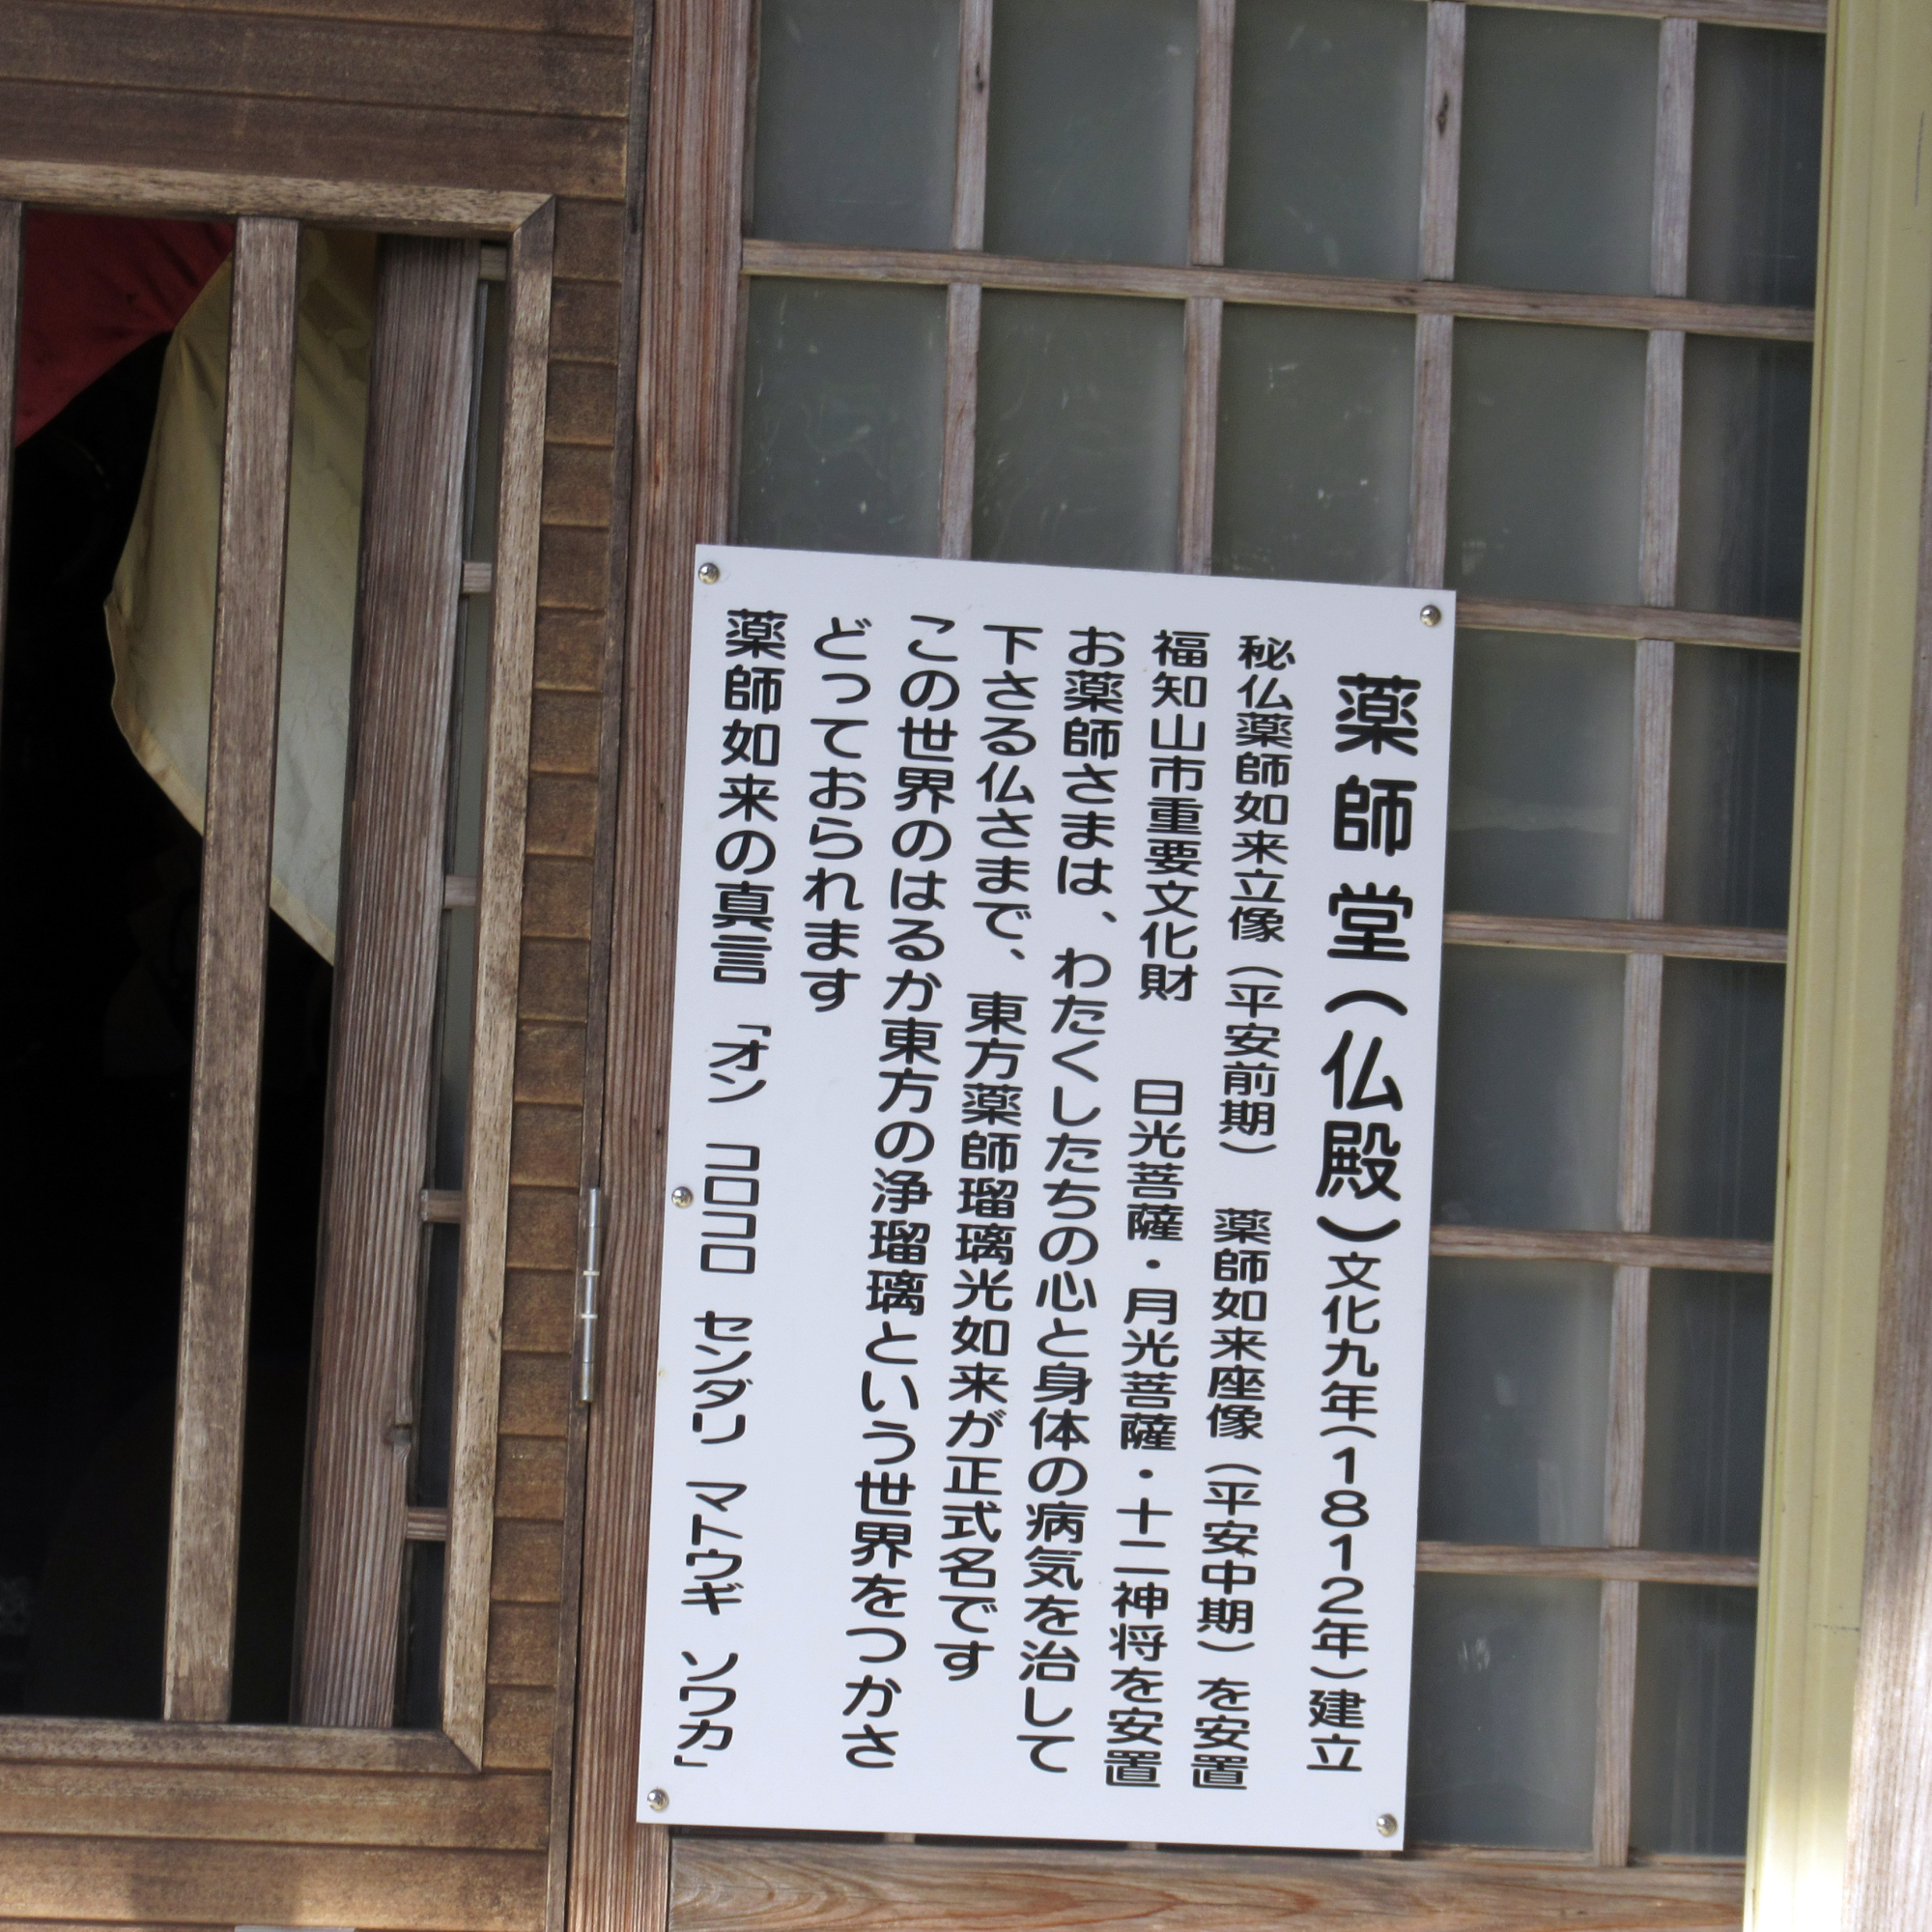 薬師堂（仏殿）文化九年（1812年）建立
秘仏薬師如来立像（平安前期）　薬師如来座像（平安中期）を安置
福知山市重要文化財　日光菩薩・月光菩薩・十二神将を安置
お薬師さまは、わたくしたちの心と身体の病気を治して
下さる仏さまで、東方薬師瑠璃光如来が正式名です
この世界のはるか東方の浄瑠璃という世界をつかさ
どっておられます
薬師如来の真言　「オン　コロコロ　センダリ　マトウギ　ソワカ」